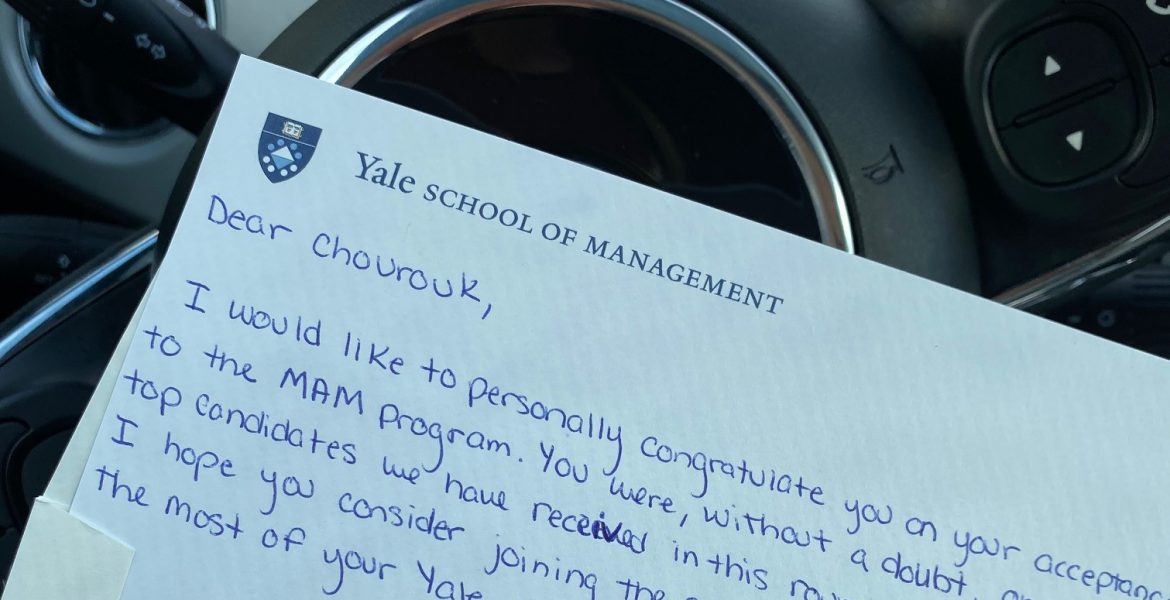 Yale SCHOOL OF MANAGEMENT
Dear Chourouk,
I would like to personally congratulate you on your acceptance
to the MAM program. You were, without a doubt,
top candidates we have received in this
I hope you consider joining the
the most of your Yale